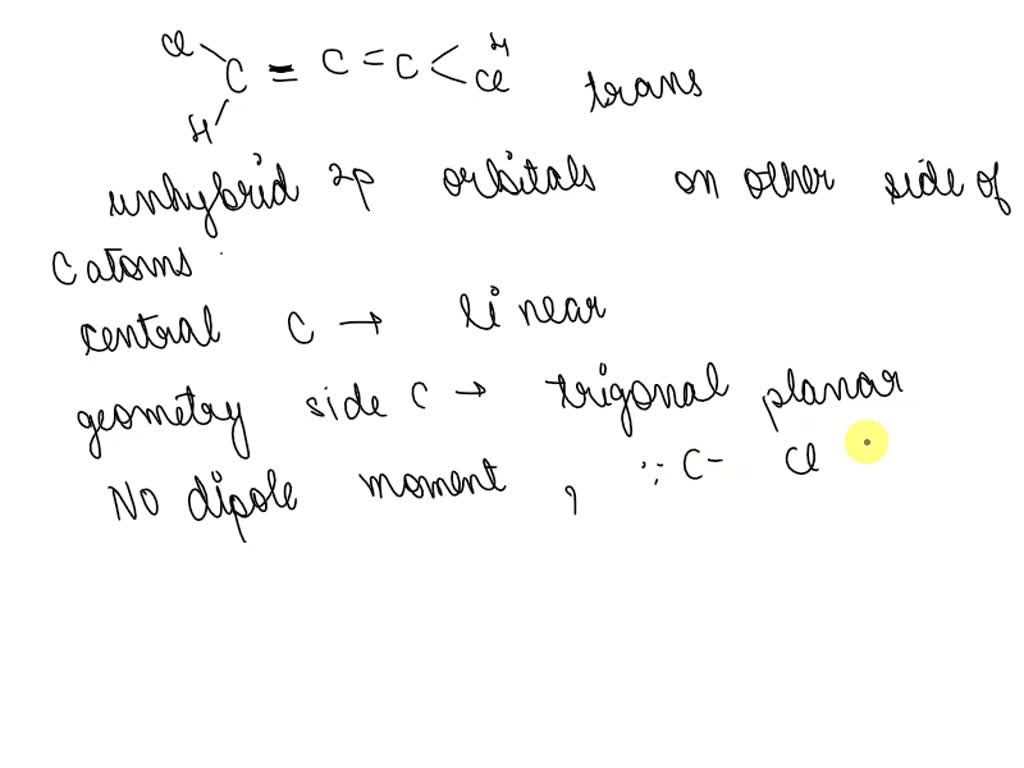 Cl H
C = C = C < Cl trans
H
unhybrid 2p orbitals on other side of
C atoms
central C → linear
geometry side C → trigonal planar
No dipole moment, ∵ C- Cl